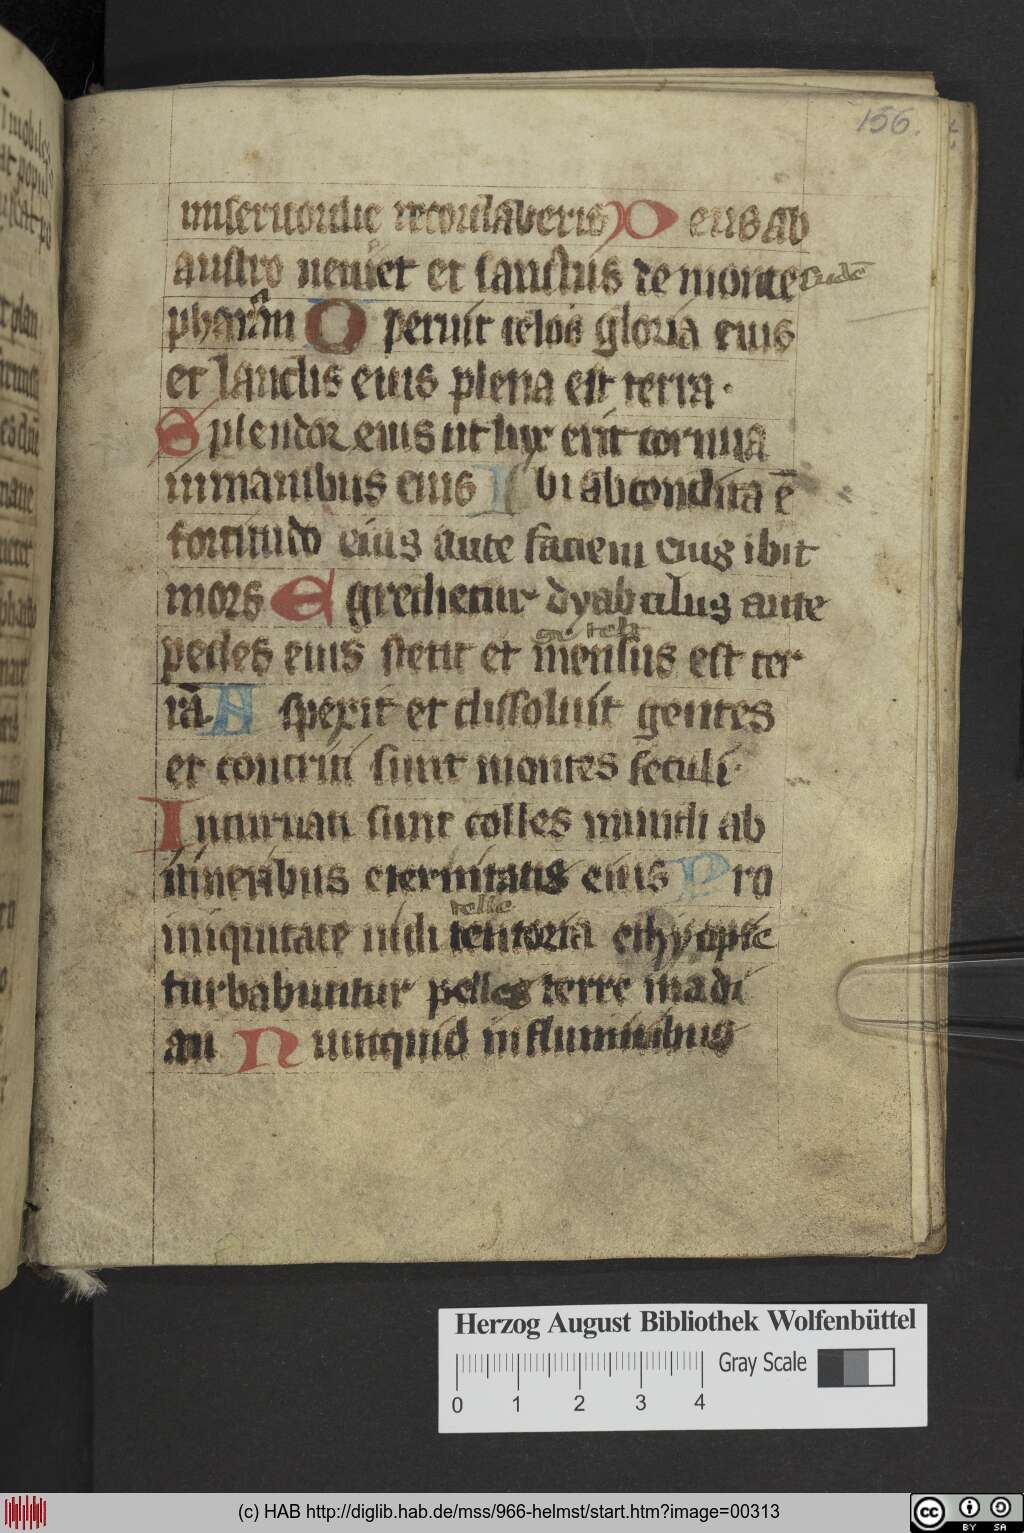 156.
misericordie recordaberis D eus ab
austro veniet et sanctus de monte
pharan O peruit celos gloria eius
et laudis eius plena est terra.
S plendor eius ut lux erit cornua
in manibus eius I bi abscondita ē
fortitudo eius ante faciem eius ibit
mors E gredietur dyabolus ante
pedes eius stetit et mensus est ter
rā. A spexit et dissoluit gentes
et contriti sunt montes seculi.
I ncuruati sunt colles mundi ab
itineribus eternitatis eius P ro
iniquitate uidi tentoria ethyopie
turbabuntur pelles terre madi
an N umquid in fluminibus
Herzog August Bibliothek Wolfenbüttel
Gray Scale
0 1 2 3 4
(c) HAB http://diglib.hab.de/mss/966-helmst/start.htm?image=00313
cc BY SA